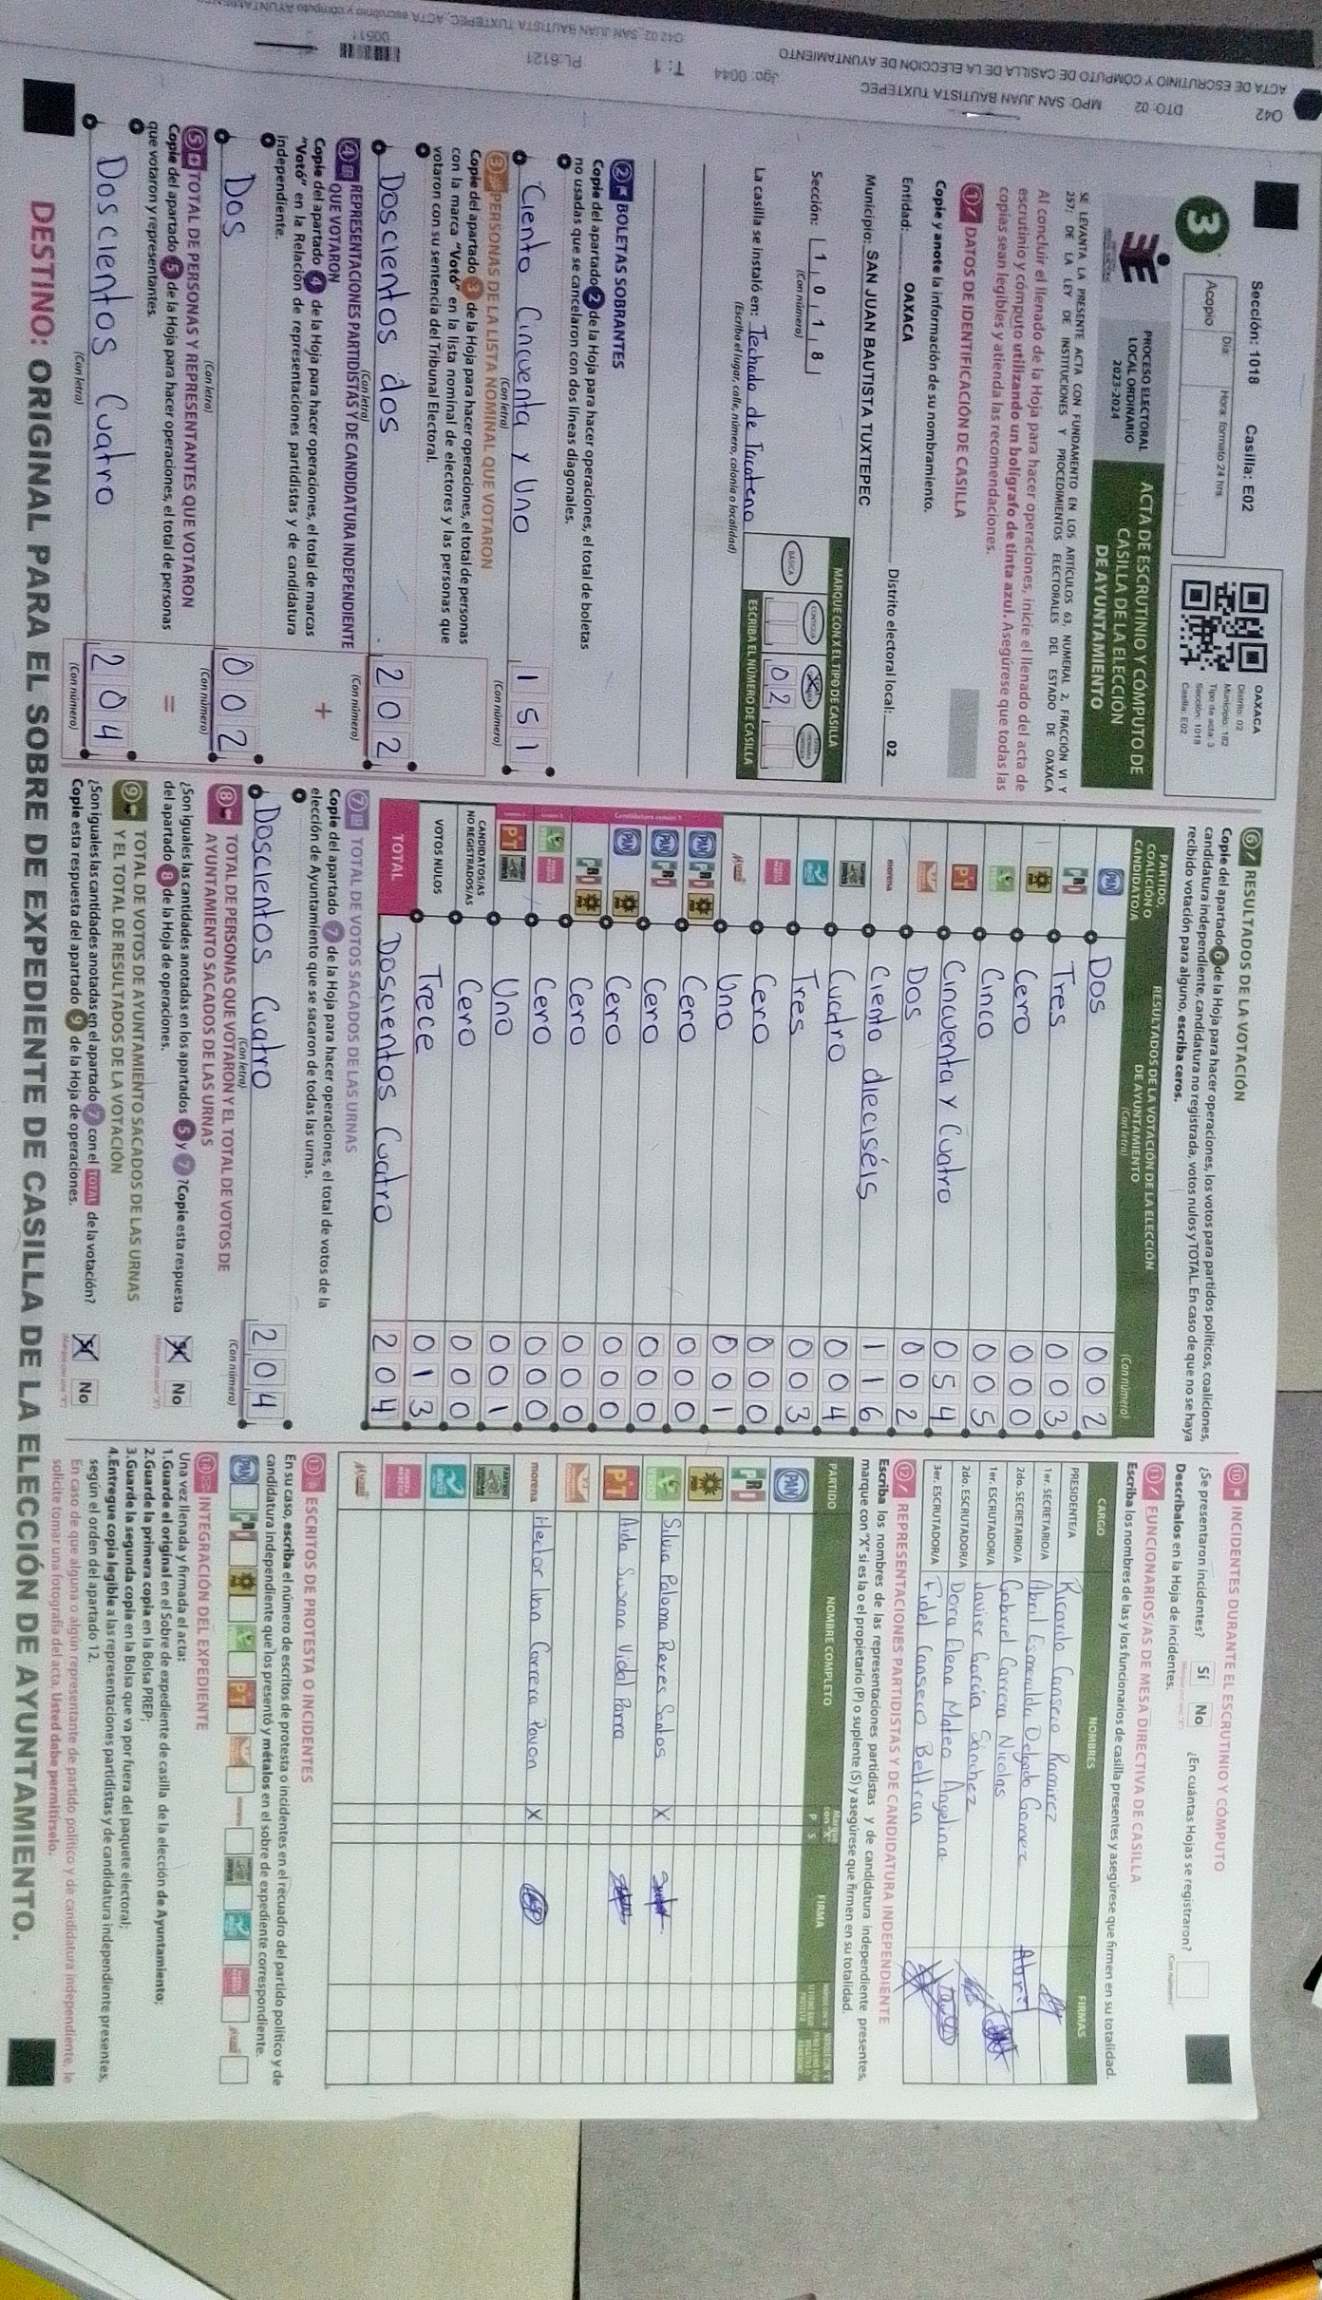 042 DTO: 02 MPO: SAN JUAN BAUTISTA TUXTEPEC
ACTA DE ESCRUTINIO Y CÓMPUTO DE CASILLA DE LA ELECCIÓN DE AYUNTAMIENTO
Jgo: 0044 T: 1 PL:6121 00511
042 02 SAN JUAN BAUTISTA TUXTEPEC, ACTA escrutinio y cómputo AYUNTAMIENTO
Sección: 1018 Casilla: E02
3
Acopio
Día:
Hora: formato 24 hrs
OAXACA
Distrito: 02
Municipio: 182
Tipo de acta: 3
Sección: 1018
Casilla: E02
PROCESO ELECTORAL
LOCAL ORDINARIO
2023-2024
ACTA DE ESCRUTINIO Y CÓMPUTO DE
CASILLA DE LA ELECCIÓN
DE AYUNTAMIENTO
SE LEVANTA LA PRESENTE ACTA CON FUNDAMENTO EN LOS ARTÍCULOS 63, NUMERAL 2, FRACCIÓN VI Y
257; DE LA LEY DE INSTITUCIONES Y PROCEDIMIENTOS ELECTORALES DEL ESTADO DE OAXACA
Al concluir el llenado de la Hoja para hacer operaciones, inicie el llenado del acta de
escrutinio y cómputo utilizando un bolígrafo de tinta azul. Asegúrese que todas las
copias sean legibles y atienda las recomendaciones.
1 DATOS DE IDENTIFICACIÓN DE CASILLA
Copie y anote la información de su nombramiento.
Entidad: OAXACA Distrito electoral local: 02
Municipio: SAN JUAN BAUTISTA TUXTEPEC
Sección: 1 0 1 8
(Con número)
MARQUE CON X EL TIPO DE CASILLA
BÁSICA
CONTIGUA
X
0 2
ESCRIBA EL NÚMERO DE CASILLA
La casilla se instaló en: Techado de Tacoteno
(Escriba el lugar, calle, número, colonia o localidad)
2 BOLETAS SOBRANTES
Copie del apartado 2 de la Hoja para hacer operaciones, el total de boletas
no usadas que se cancelaron con dos líneas diagonales.
Ciento Cincuenta y Uno 1 5 1
(Con letra) (Con número)
3 PERSONAS DE LA LISTA NOMINAL QUE VOTARON
Copie del apartado 3 de la Hoja para hacer operaciones, el total de personas
con la marca “Votó” en la lista nominal de electores y las personas que
votaron con su sentencia del Tribunal Electoral.
Doscientos dos 2 0 2
(Con letra) (Con número)
4 REPRESENTACIONES PARTIDISTAS Y DE CANDIDATURA INDEPENDIENTE
QUE VOTARON
Copie del apartado 4 de la Hoja para hacer operaciones, el total de marcas
“Votó” en la Relación de representaciones partidistas y de candidatura
independiente.
+
Dos 0 0 2
(Con letra) (Con número)
5 TOTAL DE PERSONAS Y REPRESENTANTES QUE VOTARON
Copie del apartado 5 de la Hoja para hacer operaciones, el total de personas
que votaron y representantes.
=
Doscientos Cuatro 2 0 4
(Con letra) (Con número)
6 RESULTADOS DE LA VOTACIÓN
Copie del apartado 6 de la Hoja para hacer operaciones, los votos para partidos políticos, coaliciones,
candidatura independiente, candidatura no registrada, votos nulos y TOTAL. En caso de que no se haya
recibido votación para alguno, escriba ceros.
PARTIDO,
COALICIÓN O
CANDIDATO/A
RESULTADOS DE LA VOTACIÓN DE LA ELECCIÓN
DE AYUNTAMIENTO
(Con letra) (Con número)
PAN Dos 0 0 2
PRI Tres 0 0 3
Cero 0 0 0
Cinco 0 0 5
PT Cincuenta y Cuatro 0 5 4
Dos 0 0 2
morena Ciento dieciséis 1 1 6
Cuatro 0 0 4
Tres 0 0 3
Cero 0 0 0
Uno 0 0 1
PAN PRI Cero 0 0 0
PAN PRI Cero 0 0 0
PAN Cero 0 0 0
PRI Cero 0 0 0
Cero 0 0 0
PT Uno 0 0 1
CANDIDATOS/AS
NO REGISTRADOS/AS Cero 0 0 0
VOTOS NULOS Trece 0 1 3
TOTAL Doscientos Cuatro 2 0 4
7 TOTAL DE VOTOS SACADOS DE LAS URNAS
Copie del apartado 7 de la Hoja para hacer operaciones, el total de votos de la
elección de Ayuntamiento que se sacaron de todas las urnas.
Doscientos Cuatro 2 0 4
(Con letra) (Con número)
8 TOTAL DE PERSONAS QUE VOTARON Y EL TOTAL DE VOTOS DE
AYUNTAMIENTO SACADOS DE LAS URNAS
¿Son iguales las cantidades anotadas en los apartados 5 y 7? Copie esta respuesta
del apartado 8 de la Hoja de operaciones.
X No
9 TOTAL DE VOTOS DE AYUNTAMIENTO SACADOS DE LAS URNAS
Y EL TOTAL DE RESULTADOS DE LA VOTACIÓN
¿Son iguales las cantidades anotadas en el apartado 7 con el TOTAL de la votación?
Copie esta respuesta del apartado 9 de la Hoja de operaciones.
X No
10 INCIDENTES DURANTE EL ESCRUTINIO Y CÓMPUTO
¿Se presentaron incidentes? Sí No ¿En cuántas Hojas se registraron?
(Con número)
Descríbalos en la Hoja de incidentes.
11 FUNCIONARIOS/AS DE MESA DIRECTIVA DE CASILLA
Escriba los nombres de las y los funcionarios de casilla presentes y asegúrese que firmen en su totalidad.
CARGO NOMBRES FIRMAS
PRESIDENTE/A Ricardo Canseco Ramirez
1er. SECRETARIO/A Abril Esmeralda Delgado Gomez Abril
2do. SECRETARIO/A Gabriel Carrera Nicolas
1er. ESCRUTADOR/A Javier García Sánchez
2do. ESCRUTADOR/A Dora Elena Mateo Angelina
3er. ESCRUTADOR/A Fidel Canseco Beltran
12 REPRESENTACIONES PARTIDISTAS Y DE CANDIDATURA INDEPENDIENTE
Escriba los nombres de las representaciones partidistas y de candidatura independiente presentes,
marque con “X” si es la o el propietario (P) o suplente (S) y asegúrese que firmen en su totalidad.
PARTIDO NOMBRE COMPLETO P S FIRMA
PAN
PRI
Silvia Paloma Reyes Santos X
PT Aida Susana Vidal Parra
morena Hector Ivan Carrera Pavon X
13 ESCRITOS DE PROTESTA O INCIDENTES
En su caso, escriba el número de escritos de protesta o incidentes en el recuadro del partido político y de
candidatura independiente que los presentó y métalos en el sobre de expediente correspondiente.
PAN PRI PT morena
14 INTEGRACIÓN DEL EXPEDIENTE
Una vez llenada y firmada el acta:
1.Guarde el original en el Sobre de expediente de casilla de la elección de Ayuntamiento;
2.Guarde la primera copia en la Bolsa PREP;
3.Guarde la segunda copia en la Bolsa que va por fuera del paquete electoral;
4.Entregue copia legible a las representaciones partidistas y de candidatura independiente presentes,
según el orden del apartado 12.
En caso de que alguna o algún representante de partido político y de candidatura independiente, le
solicite tomar una fotografía del acta, Usted debe permitírselo.
DESTINO: ORIGINAL PARA EL SOBRE DE EXPEDIENTE DE CASILLA DE LA ELECCIÓN DE AYUNTAMIENTO.